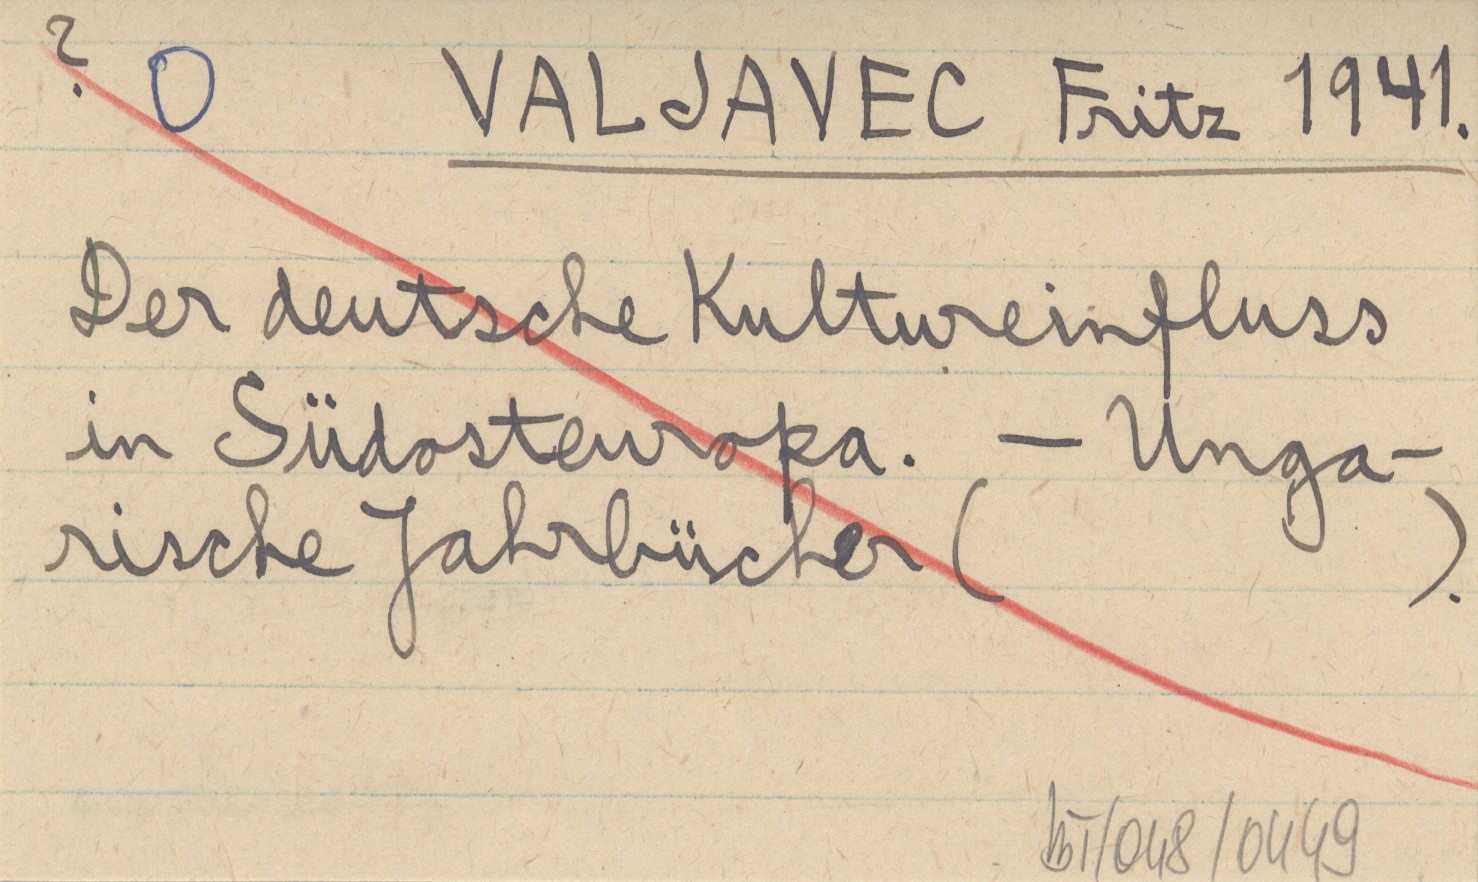 ? O VALJAVEC Fritz 1941.
Der deutsche Kultureinfluss
in Südosteuropa. — Unga-
rische Jahrbücher ( ).
/048/0449